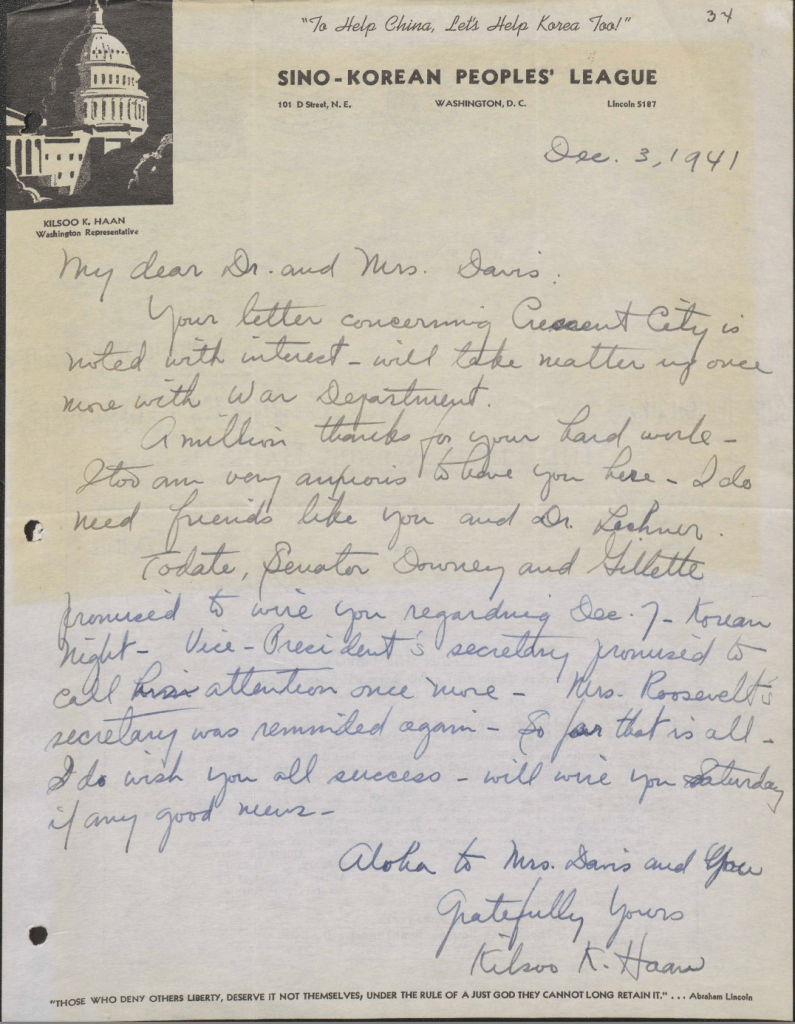 34
"To Help China, Let's Help Korea Too!"
SINO-KOREAN PEOPLES' LEAGUE
101 D Street, N. E. WASHINGTON, D. C. Lincoln 5187
Dec. 3, 1941
KILSOO K. HAAN
Washington Representative
My dear Dr. and Mrs. Davis:
Your letter concerning Crescent City is
noted with interest - will take matter up once
more with War Department.
A million thanks for your hard work -
I too am very anxious to have you here - I do
need friends like you and Dr. Lechner.
Todate, Senator Downey and Gillette
promised to wire you regarding Dec. 7 - Korean
Night - Vice-President's secretary promised to
call his attention once more - Mrs. Roosevelt's
secretary was reminded again - So far that is all -
I do wish you all success - will wire you Saturday
if any good news -
Aloha to Mrs. Davis and You
Gratefully Yours
Kilsoo K. Haan
"THOSE WHO DENY OTHERS LIBERTY, DESERVE IT NOT THEMSELVES; UNDER THE RULE OF A JUST GOD THEY CANNOT LONG RETAIN IT." . . . Abraham Lincoln